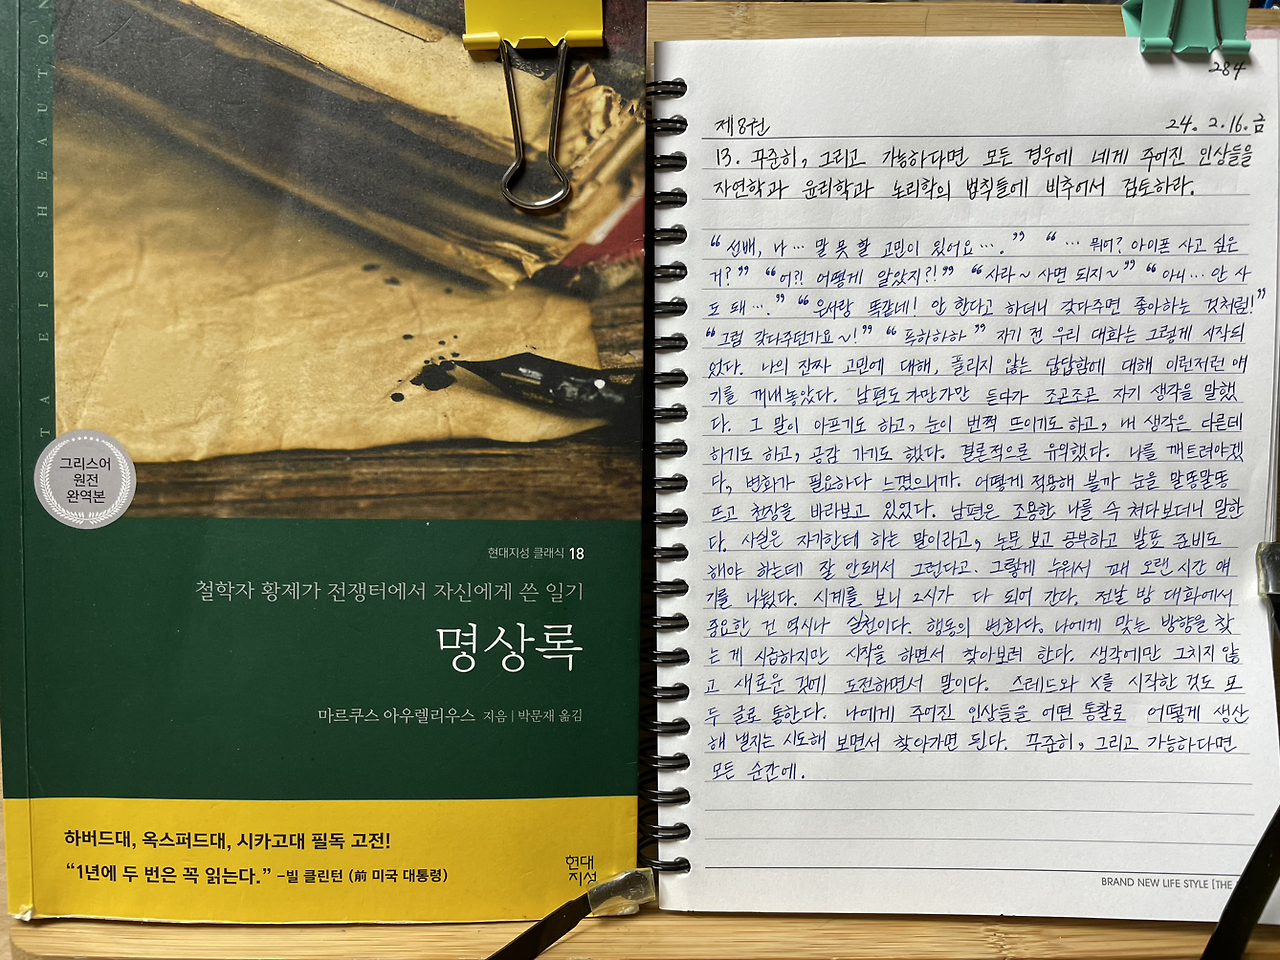 TA EIS HEAUTON
그리스어
원전
완역본
현대지성 클래식 18
철학자 황제가 전쟁터에서 자신에게 쓴 일기
명상록
마르쿠스 아우렐리우스 지음 | 박문재 옮김
하버드대, 옥스퍼드대, 시카고대 필독 고전!
“1년에 두 번은 꼭 읽는다.” –빌 클린턴 (前 미국 대통령)
현대
지성
284
제8권 24. 2. 16. 금
13. 꾸준히, 그리고 가능하다면 모든 경우에 네게 주어진 인상들을
자연학과 윤리학과 논리학의 법칙들에 비추어서 검토하라.
“선배, 나… 말 못 할 고민이 있어요….” “… 뭐어? 아이폰 사고 싶은
거?” “어?! 어떻게 알았지?!” “사라~ 사면 되지~” “아니… 안 사
도 돼….” “은서랑 똑같네! 안 한다고 하더니 갖다주면 좋아하는 것처럼!”
“그럼 갖다주던가요~!” “푸하하하” 자기 전 우리 대화는 그렇게 시작되
었다. 나의 진짜 고민에 대해, 풀리지 않는 답답함에 대해 이런저런 얘
기를 꺼내놓았다. 남편도 가만가만 듣다가 조곤조곤 자기 생각을 말했
다. 그 말이 아프기도 하고, 눈이 번쩍 뜨이기도 하고, 내 생각은 다른데
하기도 하고, 공감 가기도 했다. 결론적으론 유익했다. 나를 깨트려야겠
다, 변화가 필요하다 느꼈으니까. 어떻게 적용해 볼까 눈을 말똥말똥
뜨고 천장을 바라보고 있었다. 남편은 조용한 나를 슥 쳐다보더니 말한
다. 사실은 자기한테 하는 말이라고, 논문 보고 공부하고 발표 준비도
해야 하는데 잘 안돼서 그런다고. 그렇게 누워서 꽤 오랜 시간 얘
기를 나눴다. 시계를 보니 2시가 다 되어 간다. 전날 밤 대화에서
중요한 건 역시나 실천이다. 행동의 변화다. 나에게 맞는 방향을 찾
는 게 시급하지만 시작을 하면서 찾아보려 한다. 생각에만 그치지 않
고 새로운 것에 도전하면서 말이다. 스레드와 X를 시작한 것도 모
두 글로 통한다. 나에게 주어진 인상들을 어떤 통찰로 어떻게 생산
해 낼지는 시도해 보면서 찾아가면 된다. 꾸준히, 그리고 가능하다면
모든 순간에.
BRAND NEW LIFE STYLE [THE